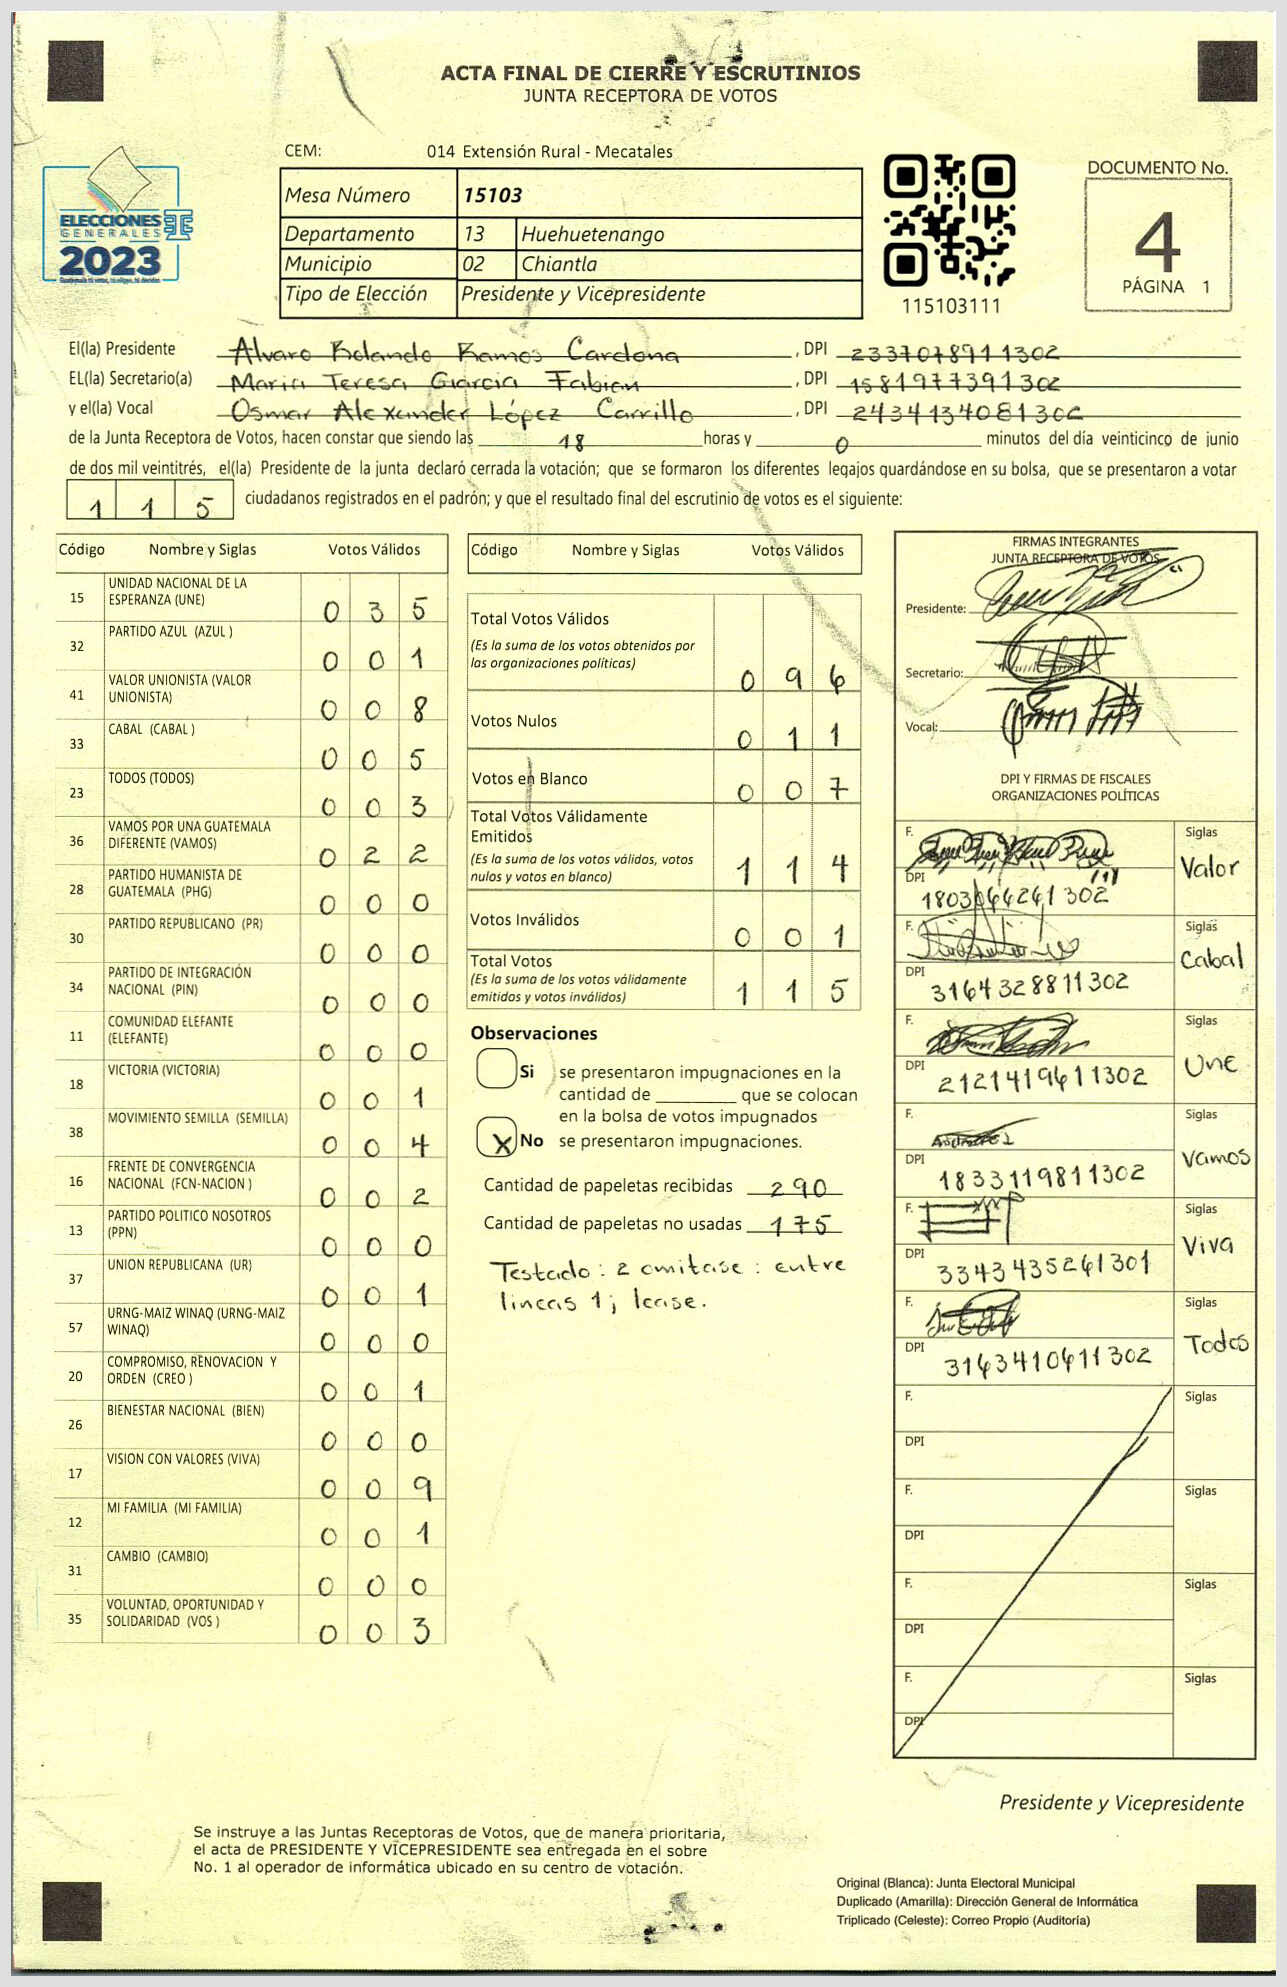 ACTA FINAL DE CIERRE Y ESCRUTINIOS
JUNTA RECEPTORA DE VOTOS
CEM: 014 Extensión Rural - Mecatales
ELECCIONES
GENERALES
2023
Mesa Número 15103
Departamento 13 Huehuetenango
Municipio 02 Chiantla
Tipo de Elección Presidente y Vicepresidente
115103111
DOCUMENTO No.
4
PÁGINA 1
El(la) Presidente Alvaro Rolando Ramos Cardona, DPI 2337078911302
EL(la) Secretario(a) Maria Teresa Garcia Fabian, DPI 1581977391302
y el(la) Vocal Osmar Alexander López Carrillo, DPI
de la Junta Receptora de Votos, hacen constar que siendo las 18 horas y 0 minutos del día veinticinco de junio
de dos mil veintitrés, el(la) Presidente de la junta declaró cerrada la votación; que se formaron los diferentes legajos quardándose en su bolsa, que se presentaron a votar
1 1 5 ciudadanos registrados en el padrón; y que el resultado final del escrutinio de votos es el siguiente:
Código Nombre y Siglas Votos Válidos
15 UNIDAD NACIONAL DE LA
ESPERANZA (UNE) 0 3 5
32 PARTIDO AZUL (AZUL ) 0 0 1
41 VALOR UNIONISTA (VALOR
UNIONISTA) 0 0 8
33 CABAL (CABAL ) 0 0 5
23 TODOS (TODOS) 0 0 3
36 VAMOS POR UNA GUATEMALA
DIFERENTE (VAMOS) 0 2 2
28 PARTIDO HUMANISTA DE
GUATEMALA (PHG) 0 0 0
30 PARTIDO REPUBLICANO (PR) 0 0 0
34 PARTIDO DE INTEGRACIÓN
NACIONAL (PIN) 0 0 0
11 COMUNIDAD ELEFANTE
(ELEFANTE) 0 0 0
18 VICTORIA (VICTORIA) 0 0 1
38 MOVIMIENTO SEMILLA (SEMILLA) 0 0 4
16 FRENTE DE CONVERGENCIA
NACIONAL (FCN-NACION ) 0 0 2
13 PARTIDO POLITICO NOSOTROS
(PPN) 0 0 0
37 UNION REPUBLICANA (UR) 0 0 1
57 URNG-MAIZ WINAQ (URNG-MAIZ
WINAQ) 0 0 0
20 COMPROMISO, RENOVACION Y
ORDEN (CREO ) 0 0 1
26 BIENESTAR NACIONAL (BIEN) 0 0 0
17 VISION CON VALORES (VIVA) 0 0 9
12 MI FAMILIA (MI FAMILIA) 0 0 1
31 CAMBIO (CAMBIO) 0 0 0
35 VOLUNTAD, OPORTUNIDAD Y
SOLIDARIDAD (VOS ) 0 0 3
Código Nombre y Siglas Votos Válidos
Total Votos Válidos
(Es la suma de los votos obtenidos por
las organizaciones políticas) 0 9 6
Votos Nulos 0 1 1
Votos en Blanco 0 0 7
Total Votos Válidamente
Emitidos
(Es la suma de los votos válidos, votos
nulos y votos en blanco) 1 1 4
Votos Inválidos 0 0 1
Total Votos
(Es la suma de los votos válidamente
emitidos y votos inválidos) 1 1 5
Observaciones
Si se presentaron impugnaciones en la
cantidad de ________ que se colocan
en la bolsa de votos impugnados
X No se presentaron impugnaciones.
Cantidad de papeletas recibidas 290
Cantidad de papeletas no usadas 175
Testado: 2 omitase: entre
lineas 1; lease.
FIRMAS INTEGRANTES
JUNTA RECEPTORA DE VOTOS
Presidente:
Secretario:
Vocal:
DPI Y FIRMAS DE FISCALES
ORGANIZACIONES POLÍTICAS
F. Siglas
Valor
DPI
F. Siglas
Cabal
DPI 3164328811302
F. Siglas
Une
DPI 2121419611302
F. Siglas
Vamos
DPI 1833119811302
F. Siglas
Viva
DPI 3343435261301
F. Siglas
Todos
DPI 3163410611302
F. Siglas
DPI
F. Siglas
DPI
F. Siglas
DPI
F. Siglas
DPI
Presidente y Vicepresidente
Se instruye a las Juntas Receptoras de Votos, que de manera prioritaria,
el acta de PRESIDENTE Y VICEPRESIDENTE sea entregada en el sobre
No. 1 al operador de informática ubicado en su centro de votación.
Original (Blanca): Junta Electoral Municipal
Duplicado (Amarilla): Dirección General de Informática
Triplicado (Celeste): Correo Propio (Auditoría)